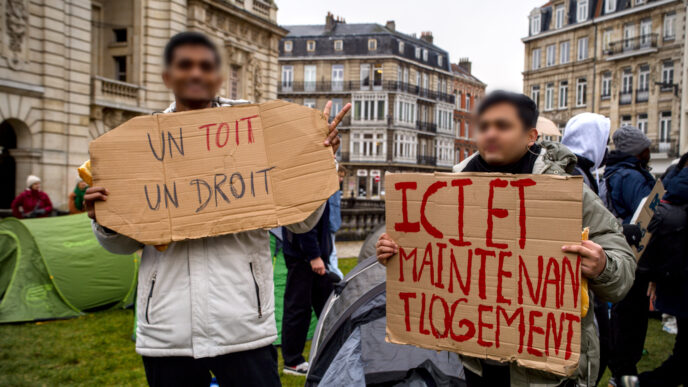 UN TOIT
UN DROIT
ICI ET
MAINTENAN
TLOGEMENT